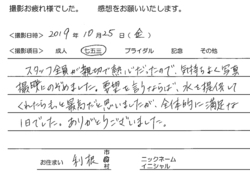 撮影お疲れ様でした。 感想をお願いいたします。
<撮影日時> 2019年 10月 25日 (金)
<撮影項目> 成人 七五三 ブライダル 記念 その他
スタッフ全員が親切で熱心だったので、気持ちよく写真
撮影にのぞめました。要望を言うならば、水を提供して
くれたらもっと最高だと思いましたが、全体的に満足な
1日でした。ありがとうございました。
お住まい 利根 市 郡 町 村 ニックネーム イニシャル